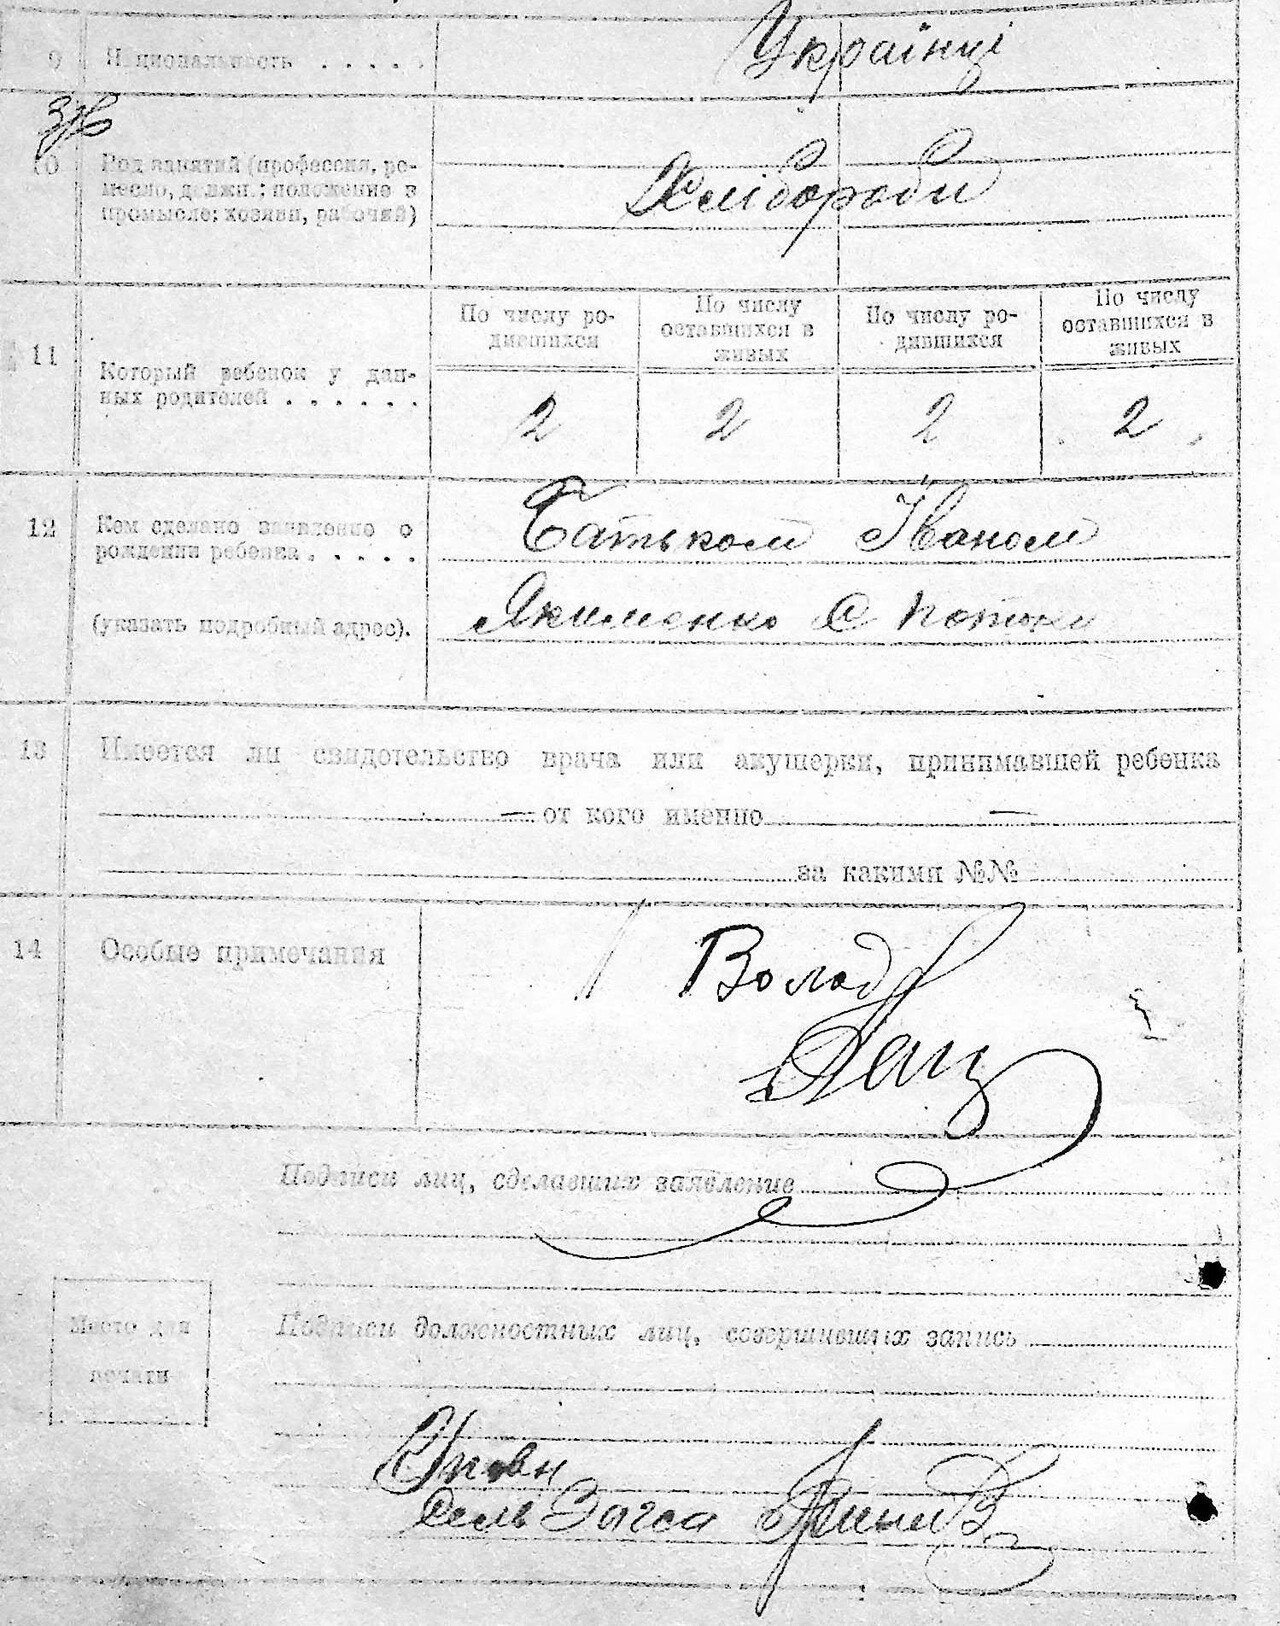 9 Национальность . . . . . Українці
10 Род занятий (профессия, ре-
месло, должн.: положение в
промысле: хозяин, рабочий)
Хлібороби
По числу ро-
дившихся
По числу
оставшихся в
живых
По числу ро-
дившихся
По числу
оставшихся в
живых
11 Который ребенок у дан-
ных родителей . . . . . .
2 2 2 2
12 Кем сделано заявление о
рождении ребенка . . . . .
(указать подробный адрес).
Батьком Іваном
Якименко с Потоки
13 Имеется ли свидетельство врача или акушерки, принимавшей ребенка
— от кого именно —
за какими №№
14 Особые примечания
Волод
Подписи лиц, сделавших заявление
Место для
печати
Подписи должностных лиц, совершивших запись
Уповн
Сель Загса